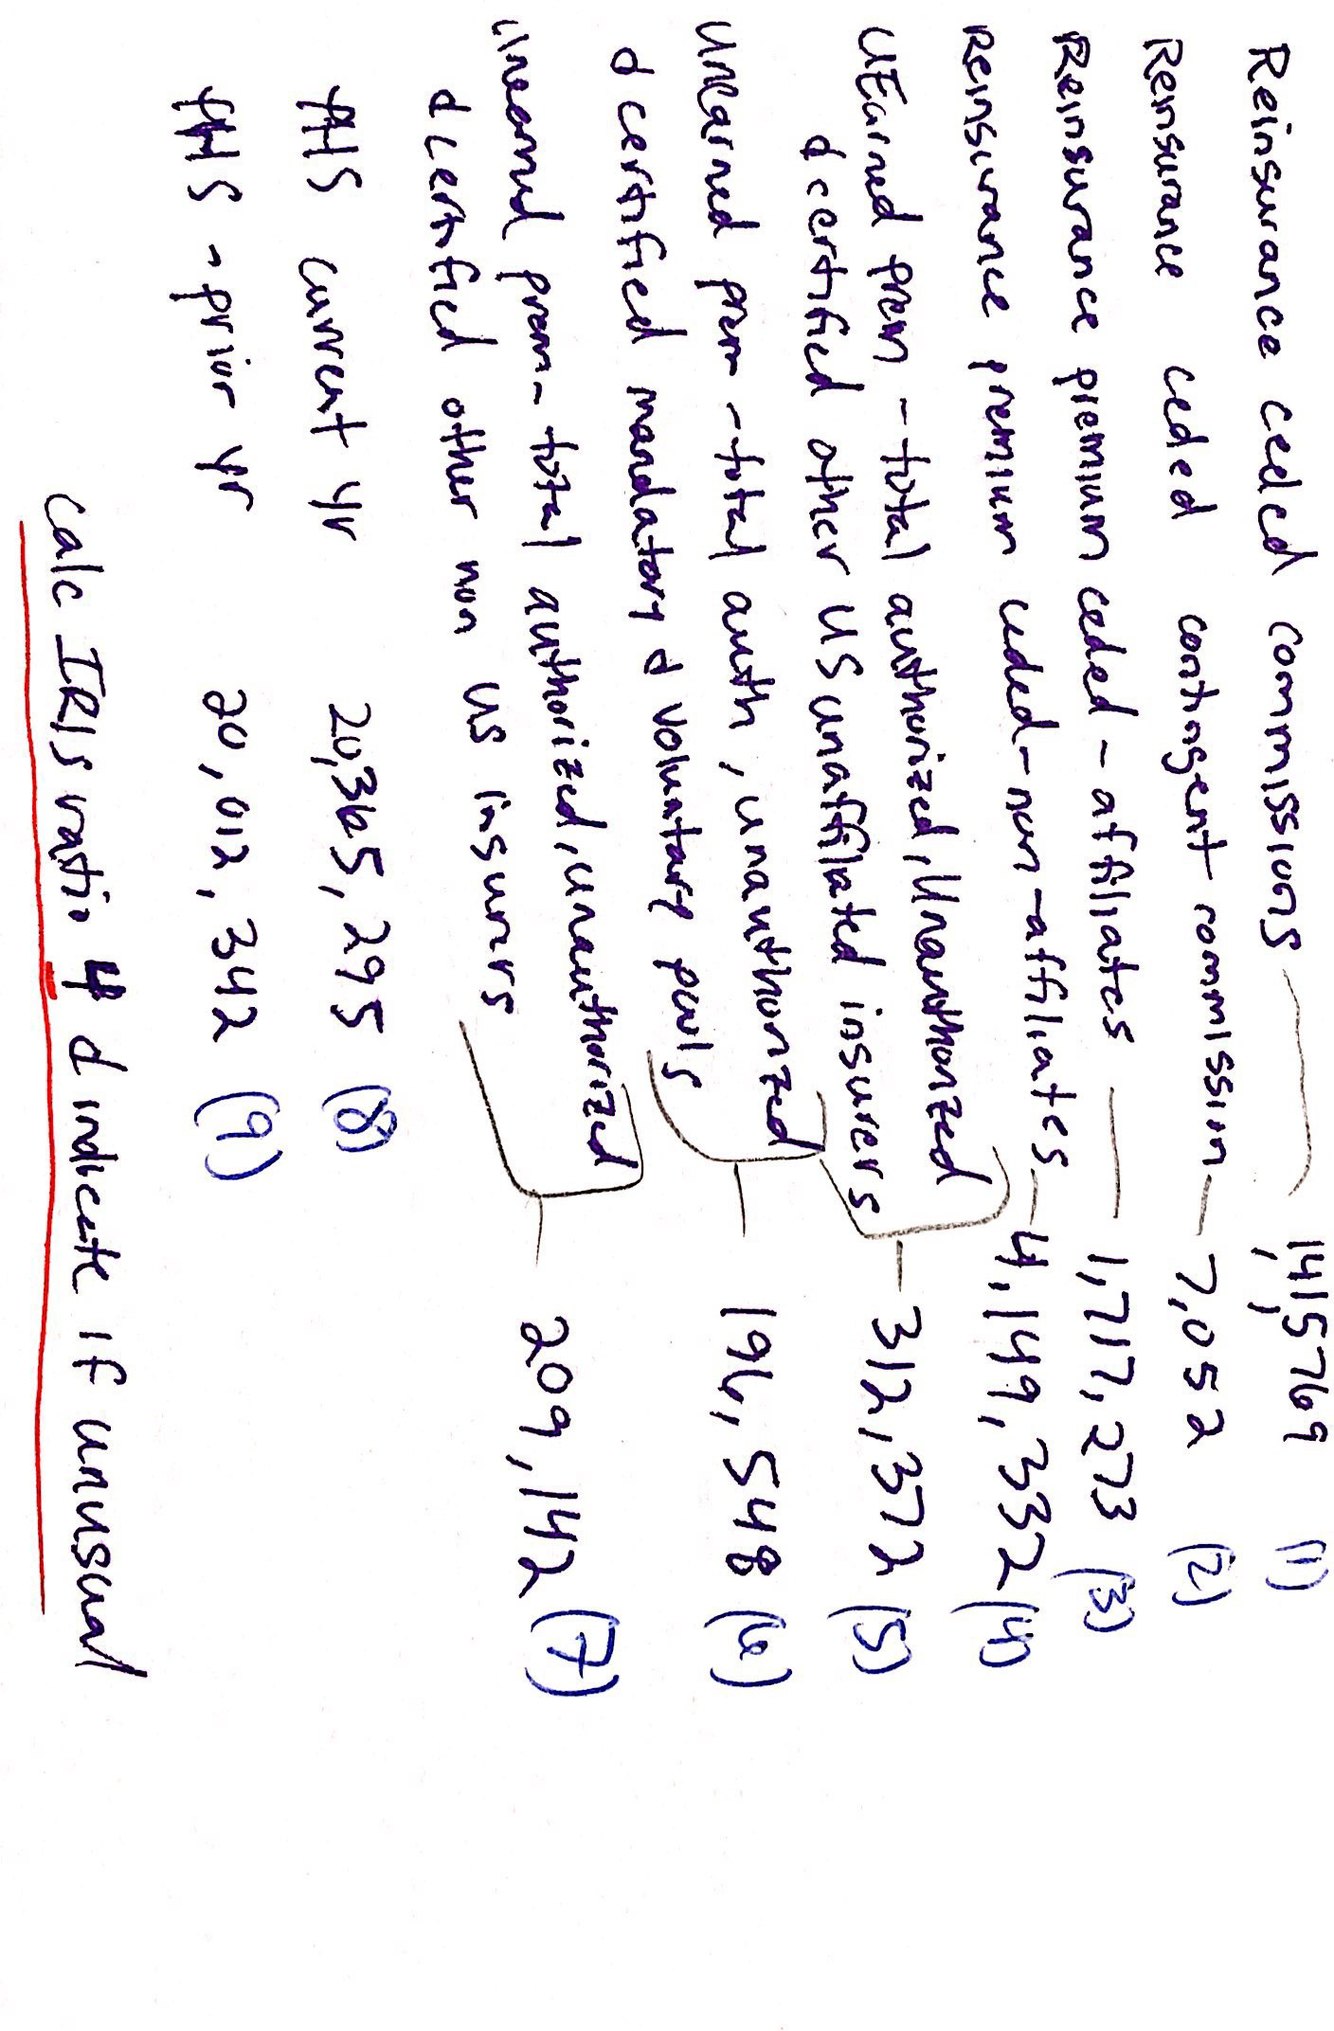 Reinsurance ceded commissions 1,141,5769 (1)
Reinsurance ceded contingent commission 7,052 (2)
Reinsurance premium ceded - affiliates 1,717,273 (3)
Reinsurance premium ceded - non-affiliates 4,149,332 (4)
UEarned prem - total authorized, Unauthorized
& certified other US unaffiliated insurers 312,372 (5)
Unearned prem - total auth, unauthorized
& certified mandatory & voluntary pools 196,548 (6)
Unearned prem - total authorized, unauthorized
& certified other non US insurers 209,142 (7)
PHS current yr 20,365,295 (8)
PHS - prior yr 20,012,342 (9)
Calc IRIS ratio 4 & indicate if unusual